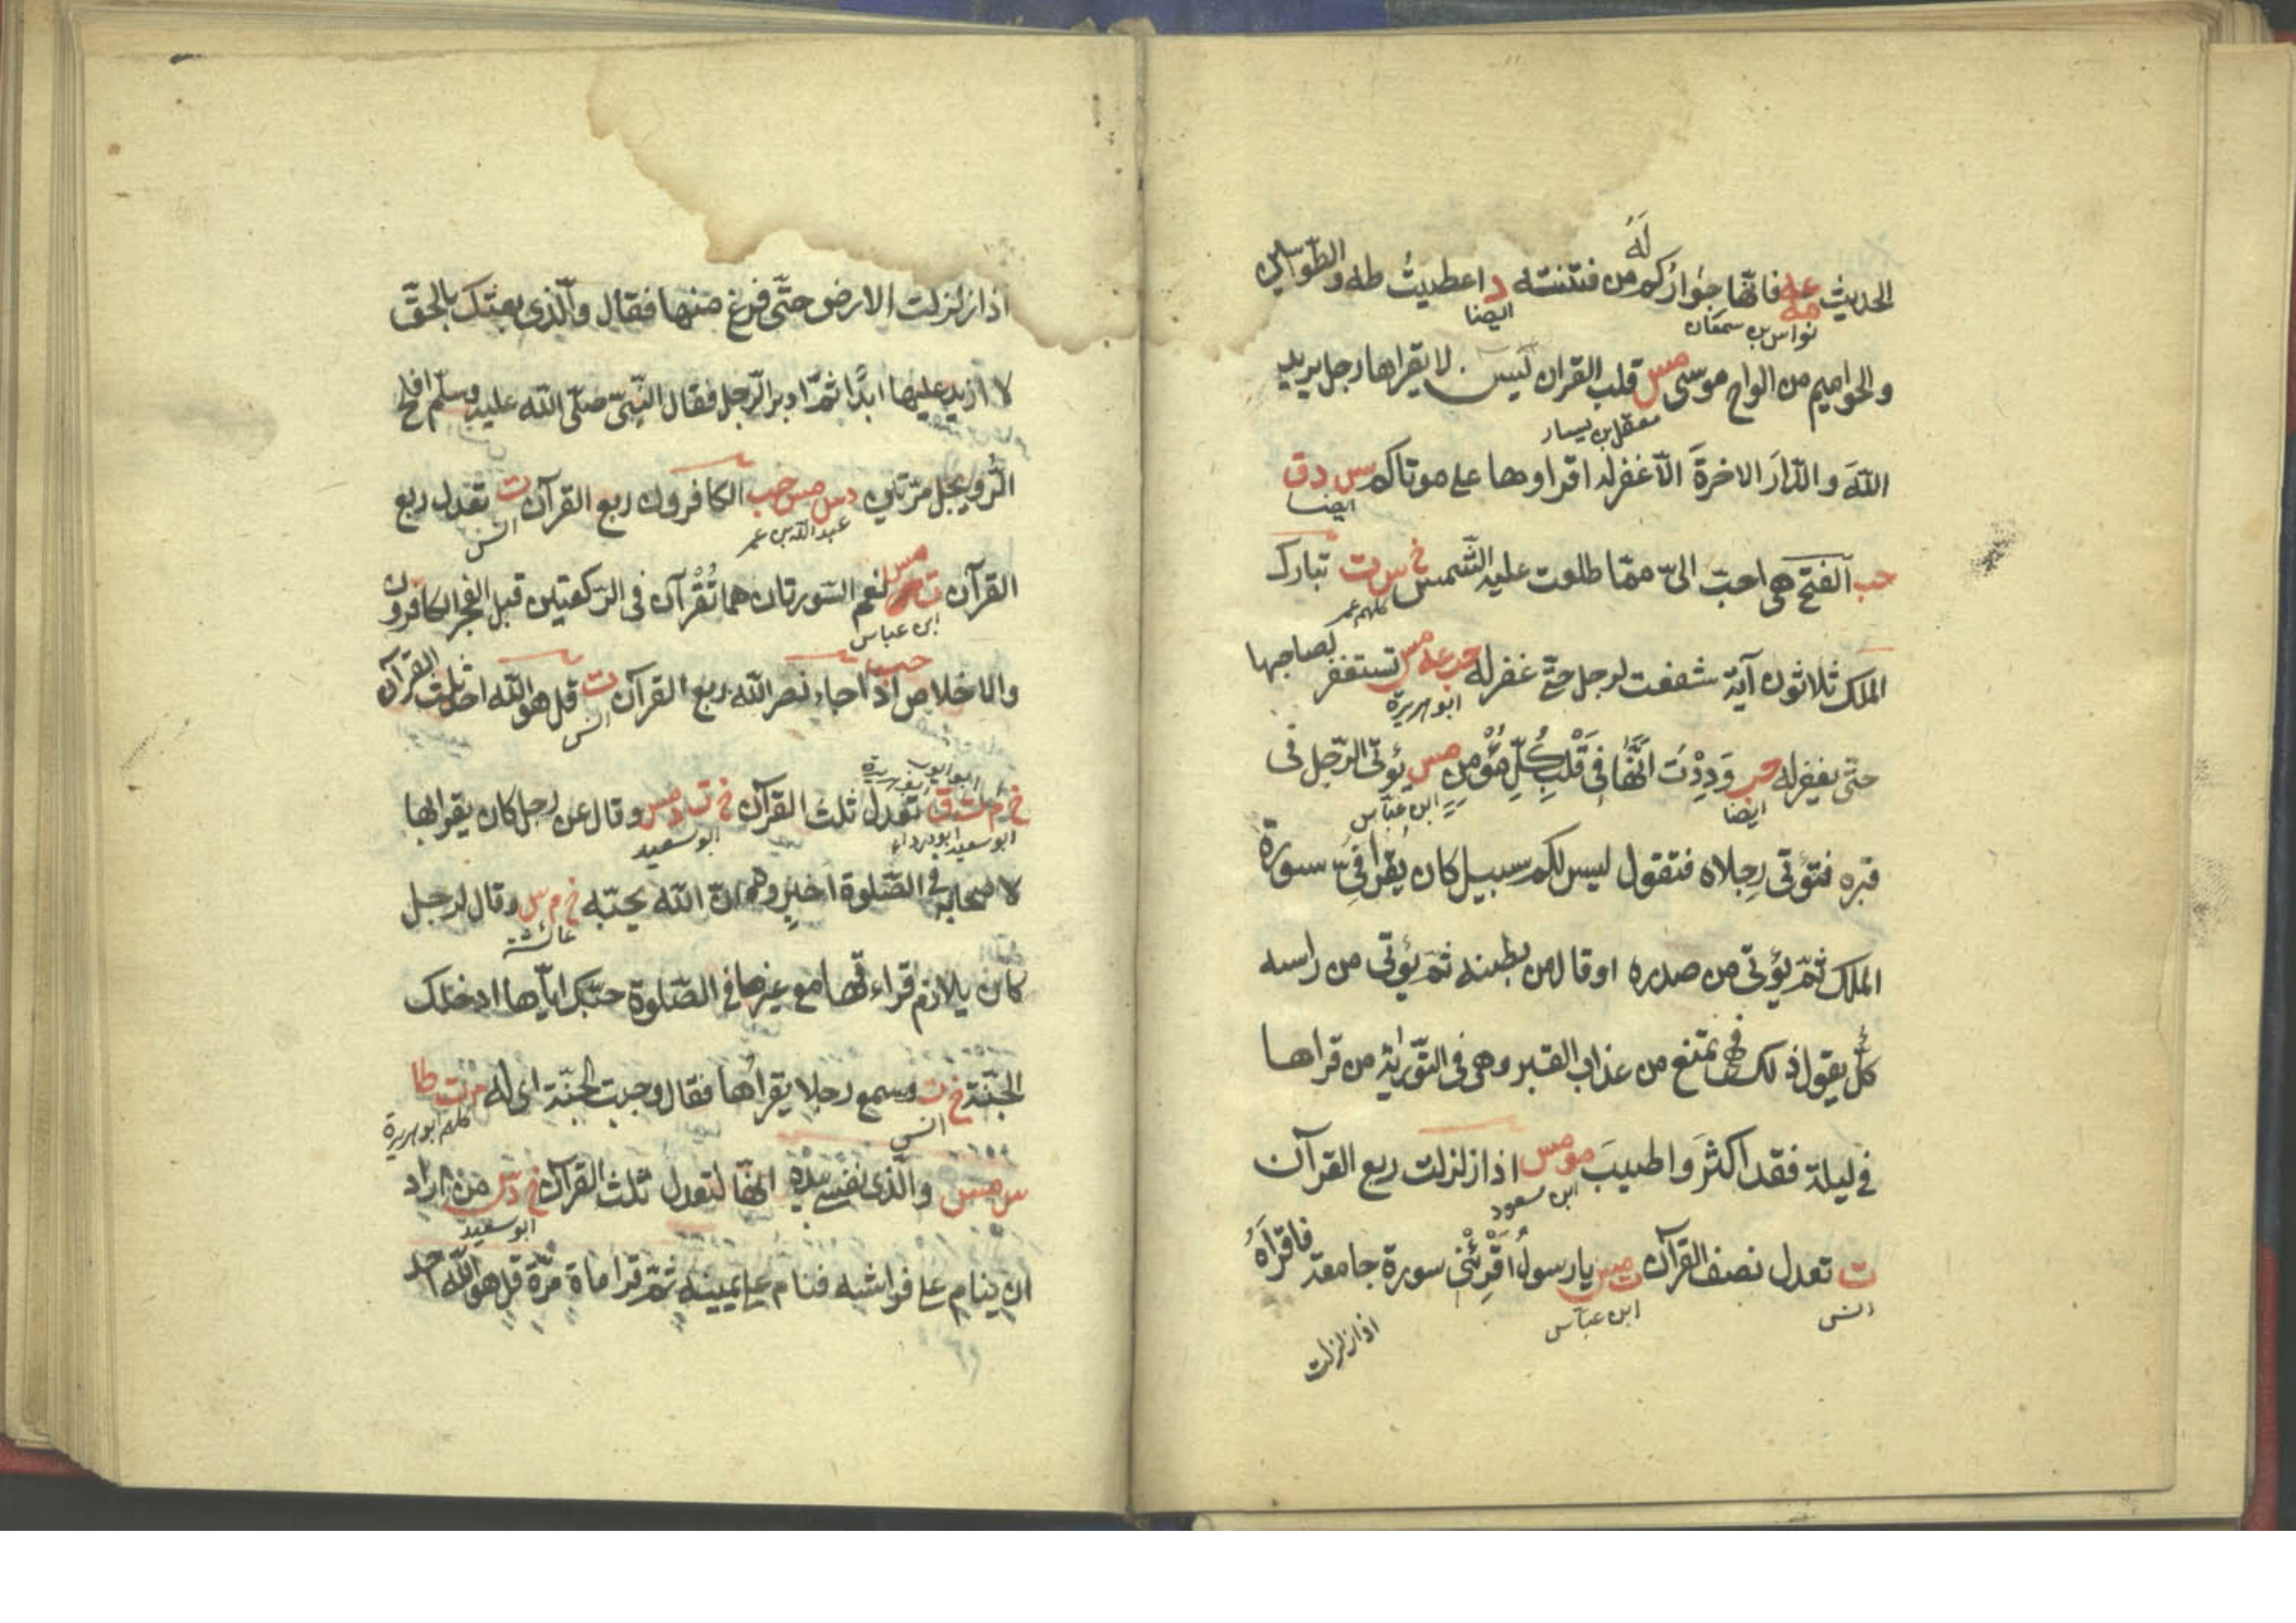 لَهُ
الحديث عه مه فانها جوارکم من فتنته د اعطيتُ طه والطواسين
نواس بن سمعان ايضا
والحواميم من الواح موسى مس قلب القران يس لا يقراها رجل يريد
معقل بن يسار
اللهَ والدّارَ الاخرةَ الّا غفر له اقراوها على موتاكم س د ق
ايضا
حب الفتح هي احبّ الىّ ممّا طلعت عليه الشّمس خ س ت تبارك
كلهم عمر
الملك ثلاثون آية شفعت لرجل حتّى غفر له حب عه مس تستغفر لصاحبها
ابو هريرة
حتّى يغفر له حب وَدِدْتُ انَّهَا فِى قَلْبِ كُلِّ مُؤْمِنٍ مس يؤتى الرّجل فى
ايضا ابن عبّاس
قبره فتؤتى رِجلاه فتقول ليس لكم سبيل كان يُقرا فىّ سورة
الملك ثمّ يؤتى من صدره او قال من بطنه ثمّ يؤتى من راسه
كلٌّ يقول ذلك فهى تمنع من عذاب القبر وهى فى التّورية من قراها
فى ليلة فقد اكثَرَ واطيبَ مو مس اذا زلزلت ربع القرآن
ابن مسعود
ت تعدل نصف القرآن ت مس يا رسولُ اَقْرِئْنى سورة جامعة فاقرأهُ
انس ابن عبّاس
اذا زلزلت
اذا زلزلت الارض حتّى فرغ منها فقال والّذى بعثك بالحقّ
لا ازيد عليها ابدًا ثمّ ادبر الرّجل فقال النّبىّ صلّى الله عليه وسلّم افلح
الرُّويجل مرّتين د س مس حب الكافرون ربع القرآن ت تعدل ربع
عبد الله بن عمر انس
القرآن ت مس نعم السّورتان هما تُقْرآن فى الرّكعتين قبل الفجر الكافرون
ابن عباس
والاخلاص حب اذا جاء نصر الله ربع القرآن ت قل هو الله احد ثلث القرآن
انس
ابو ايوب
خ م ت ق تعدل ثلث القرآن خ ت د مس وقال عن رجل كان يقرا بها
ابو سعيد ابو درداء ابو سعيد
لاصحابه فى الصّلوة اخبروه انّ الله يحبّه خ م س وقال لرجل
عائشة
كان يلازم قراءتها مع غيرها فى الصّلوة حبّك ايّاها ادخلك
الجنّة خ ت وسمع رجلا يقرأها فقال وجبت الجنّة اى له ت طا
انس كلهم ابو هريرة
س مس والّذى نفسى بيده انّها لتعدل ثلث القرآن خ د س من اراد
ابو سعيد
ان ينام على فراشه فنام على يمينه ثمّ قرا ماة مرّة قل هو الله احد